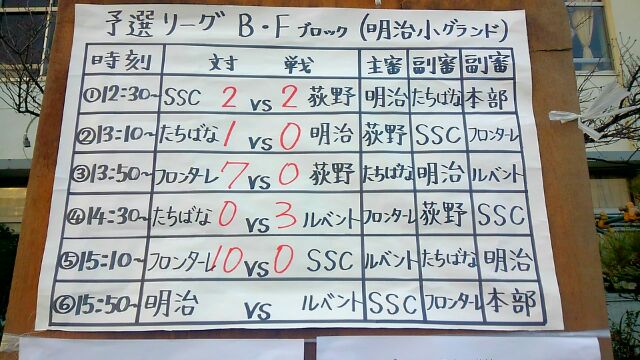 予選リーグ B・Fブロック (明治小グランド)
時刻 対戦 主審 副審 副審
①12:30~ SSC 2 vs 2 荻野 明治 たちばな 本部
②13:10~ たちばな 1 vs 0 明治 荻野 SSC フロンターレ
③13:50~ フロンターレ 7 vs 0 荻野 たちばな 明治 ルベント
④14:30~ たちばな 0 vs 3 ルベント フロンターレ 荻野 SSC
⑤15:10~ フロンターレ 10 vs 0 SSC ルベント たちばな 明治
⑥15:50~ 明治 vs ルベント SSC フロンターレ 本部